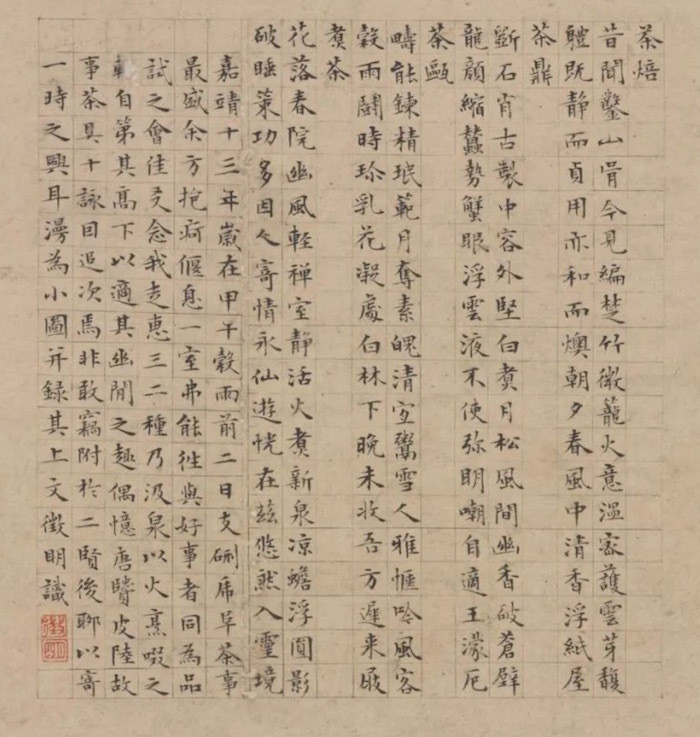 茶焙
昔聞鑿山骨今見編楚竹微籠火意溫密護雲芽馥
體既靜而貞用亦和而燠朝夕春風中清香浮紙屋
茶鼎
斵石肖古製中容外堅白煑月松風間幽香破蒼壁
龍顏縮蠶勢蟹眼浮雲液不使弥明嘲自適王濛厄
茶甌
疇能鍊精珉範月奪素魄清宜鬻雪人雅愜吟風客
穀雨鬪時珍乳花凝處白林下晚未收吾方遲来屐
煑茶
花落春院幽風輕禅室靜活火煑新泉凉蟾浮圓影
破睡策功多因人寄情永仙遊恍在兹悠然入靈境
嘉靖十三年歲在甲午穀雨前二日支硎虎阜茶事
最盛余方抱疴偃息一室弗能徃與好事者同為品
試之會佳友念我走惠三二種乃汲泉以火烹啜之
輙自第其高下以適其幽閒之趣偶憶唐賢皮陸故
事茶具十詠因追次焉非敢竊附於二賢後聊以寄
一時之興耳漫為小圖并録其上文徵明識
徵明